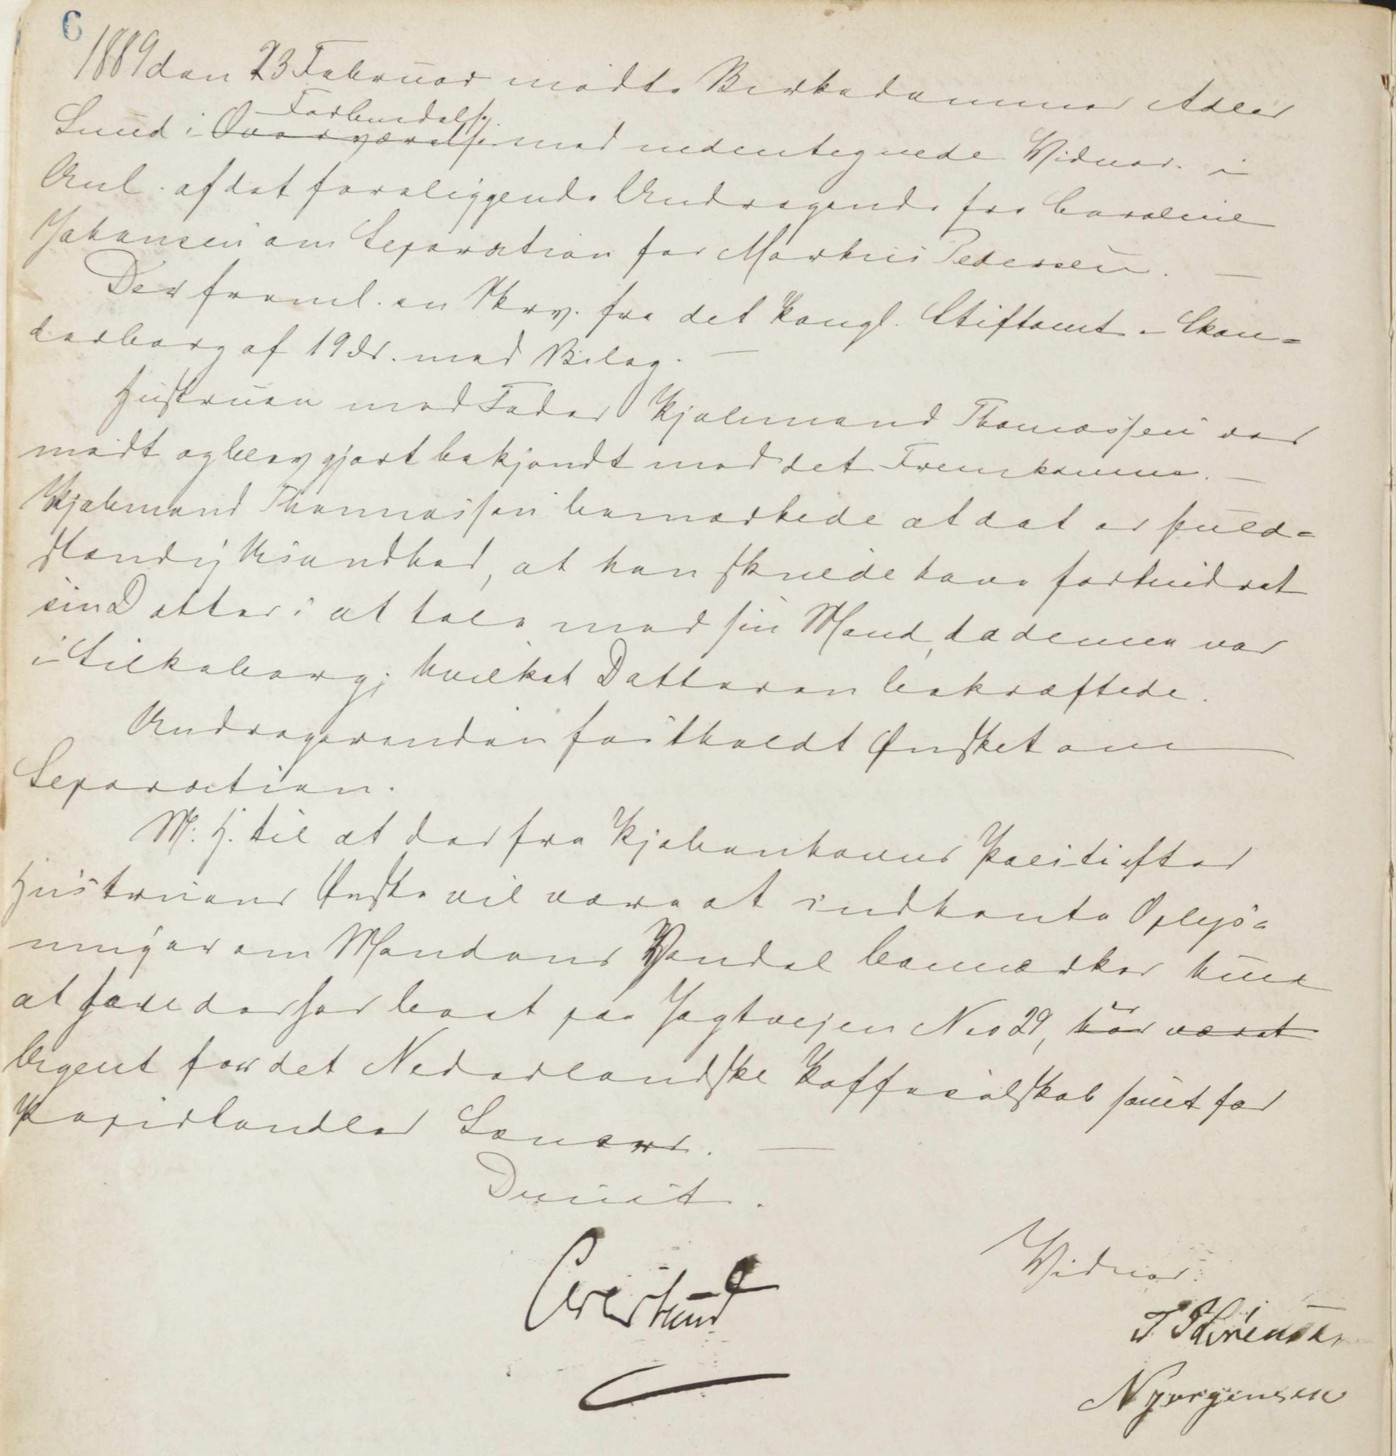 6
1889 den 23 Februar mødte Birkedommer Adler
Forbindelse
Lund i Overværelse med undertegnede Vidner i
Anl. af det foreliggende Andragende fra Caroline
Johansen om Separation for Markus Pedersen. —
Der freml. en Skrv. fra det kongl. Stiftamt i Skan-
derborg af 19 ds. med Bilag. —
Hustruen med Fader Hjulmand Thomassen var
mødt og blev gjort bekjendt med det Fremkomne. —
Hjulmand Thomassen bemærkede at det er fuld-
stændig Usandhed, at han skulde have forhindret
sin Datter i at tale med sin Mand, da denne var
i Silkeborg; hvilket Datteren bekræftede.
Andragerinden fastholdt Ønsket om
Separation.
M. H. til at der fra Kjøbenhavns Politi efter
Hustruens Ønske vil være at indhente Oplys-
ninger om Mandens Vandel bemærker hun
at have der har boet paa Jagtvejen No 29, har været
Agent for det Nederlandske Kaffeselskab samt for
Papirhandler
Dimit.
Adler Lund
Vidner:
N Jørgensen